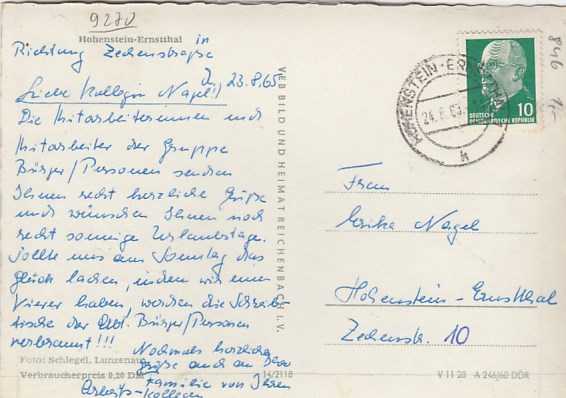 9270
Hohenstein-Ernstthal in
Richtung Zechenstraße
D, 23.8.65
Liebe Kollegin Nagel!
Die Mitarbeiterinnen und
Mitarbeiter der Gruppe
Bürger/Personen senden
Ihnen recht herzliche Grüße
und wünschen Ihnen noch
recht sonnige Urlaubstage.
Sollte uns am Sonntag das
Glück lachen, indem wir einen
Vierer haben, werden die Schreib-
tische der Abt. Bürger/Personen
verbrannt!!!
Nochmals herzliche
Grüße auch an Ihre
Familie von Ihren
Arbeits-kollegen
Foto: Schlegel, Lunzenau
Verbraucherpreis 0,20 DM
14/2118
VEB BILD UND HEIMAT REICHENBACH I. V.
HOHENSTEIN-ERNSTTHAL
24.8.65
h
10
DEUTSCHE
DEMOKRATISCHE REPUBLIK
846
1,-
Frau
Erika Nagel
Hohenstein-Ernstthal
Zechenstr. 10
V 11 28 A 246/60 DDR